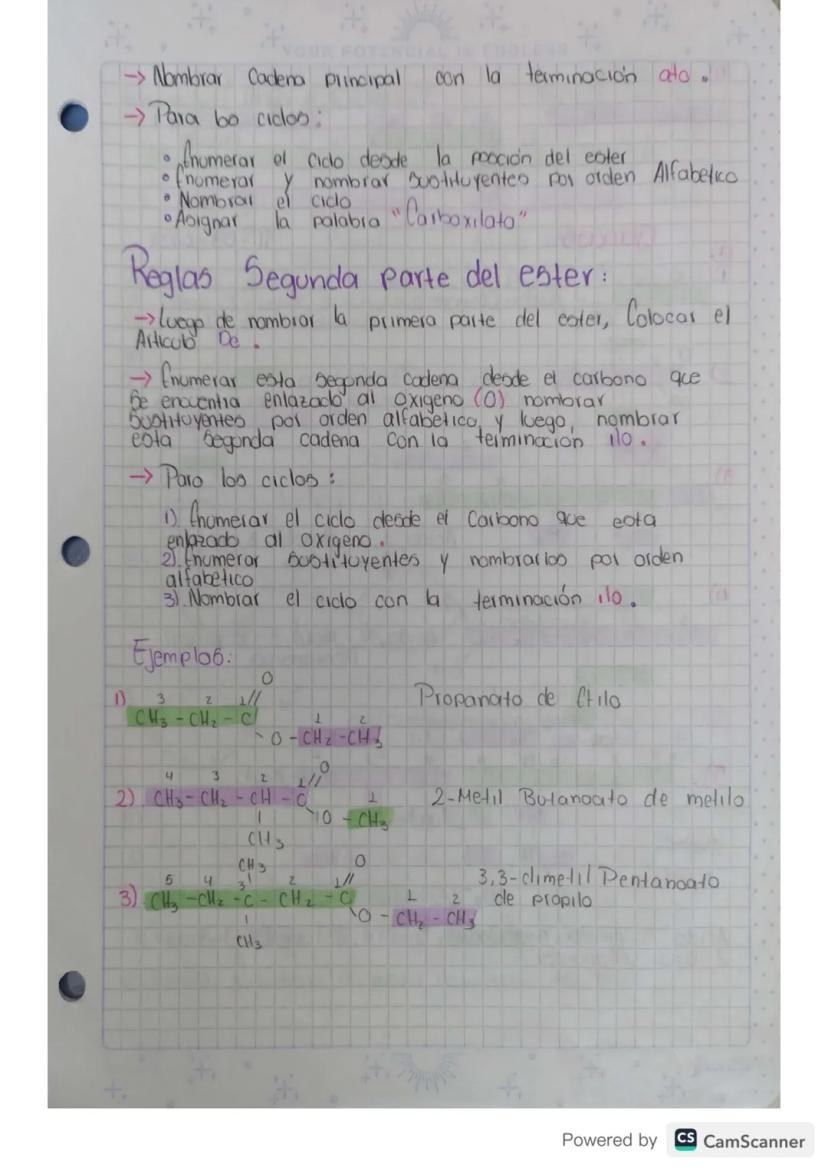 YOUR POTENTIAL IS ENDLESS
→ Nombrar Cadena principal con la terminación ato.
→ Para los ciclos:
• Enumerar el ciclo desde la posición del ester
• Enumerar y nombrar sustituyentes por orden Alfabetico
• Nombrar el ciclo
• Asignar la palabra "Carboxilato"
Reglas Segunda parte del ester:
→ Luego de nombrar la primera parte del ester, Colocar el
Articulo De.
→ Enumerar esta segunda cadena desde el carbono que
se encuentra enlazado al oxigeno (O) nombrar
sustituyentes por orden alfabetico, y luego, nombrar
esta segonda cadena con la terminación ilo.
→ Para los ciclos:
1) Enumerar el ciclo desde el Carbono que esta
enlazado al oxigeno.
2) Enumerar sustituyentes y nombrarlos por orden
alfabetico
3). Nombrar el ciclo con la terminación ilo.
Ejemplos:
O
1) 3 2 1 // Propanato de Etilo
CH₃ - CH₂ - C 1 2
\ O - CH₂ - CH₃
4 3 2 1 // O
2) CH₃ - CH₂ - CH - C 1 2-Metil Butanoato de metilo
| \ O - CH₃
CH₃
CH₃ O
5 4 3 | 2 1 // 3,3-dimetil Pentanoato
3) CH₃ - CH₂ - C - CH₂ - C 1 2 de propilo
| \ O - CH₂ - CH₃
CH₃
Powered by CS CamScanner